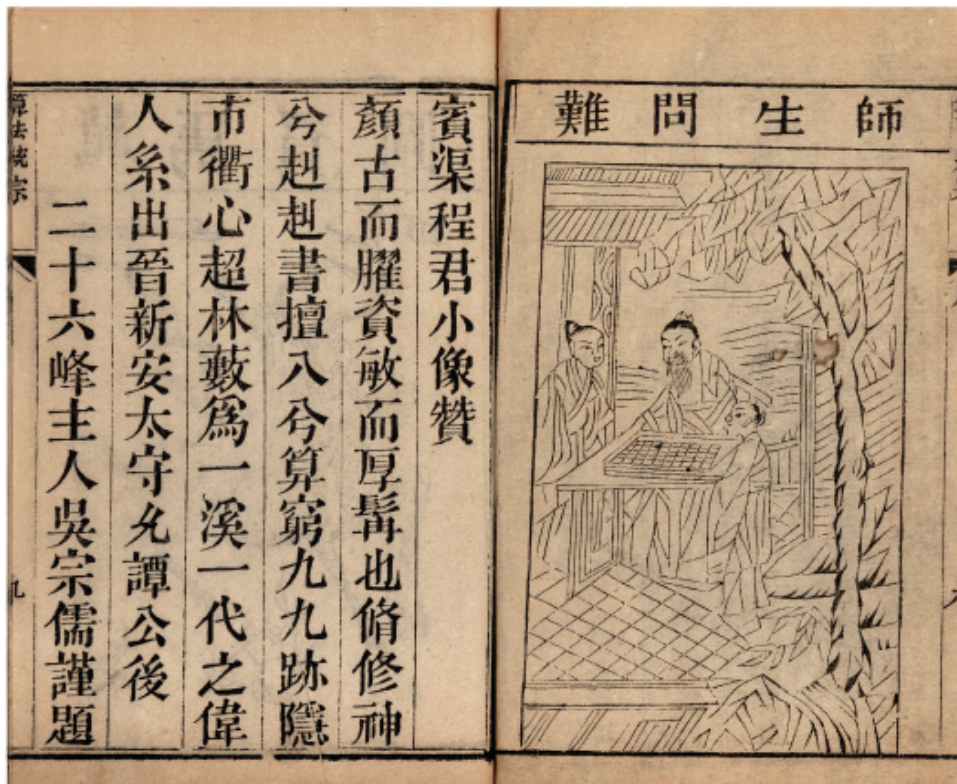 師生問難
賓渠程君小像贊
顏古而臞資敏而厚髯也脩修神
兮赳赳書擅八兮算窮九九跡隱
市衢心超林藪為一溪一代之偉
人系出晉新安太守元譚公後
二十六峰主人吳宗儒謹題
算法統宗
九